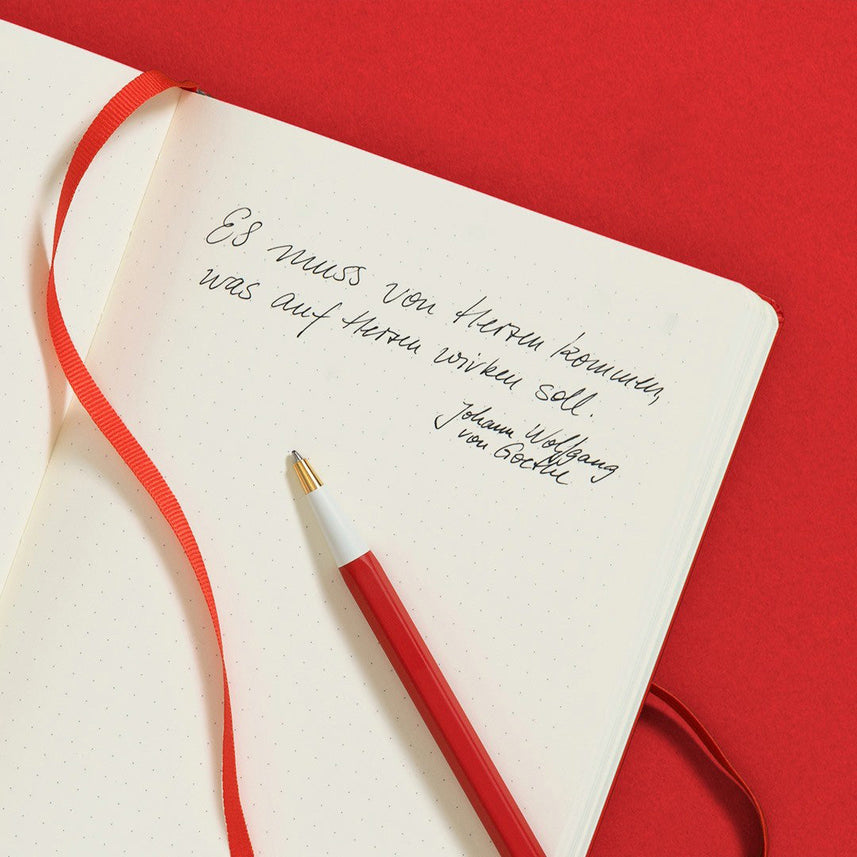 Es muss von Herzen kommen,
was auf Herzen wirken soll.
Johann Wolfgang
von Goethe